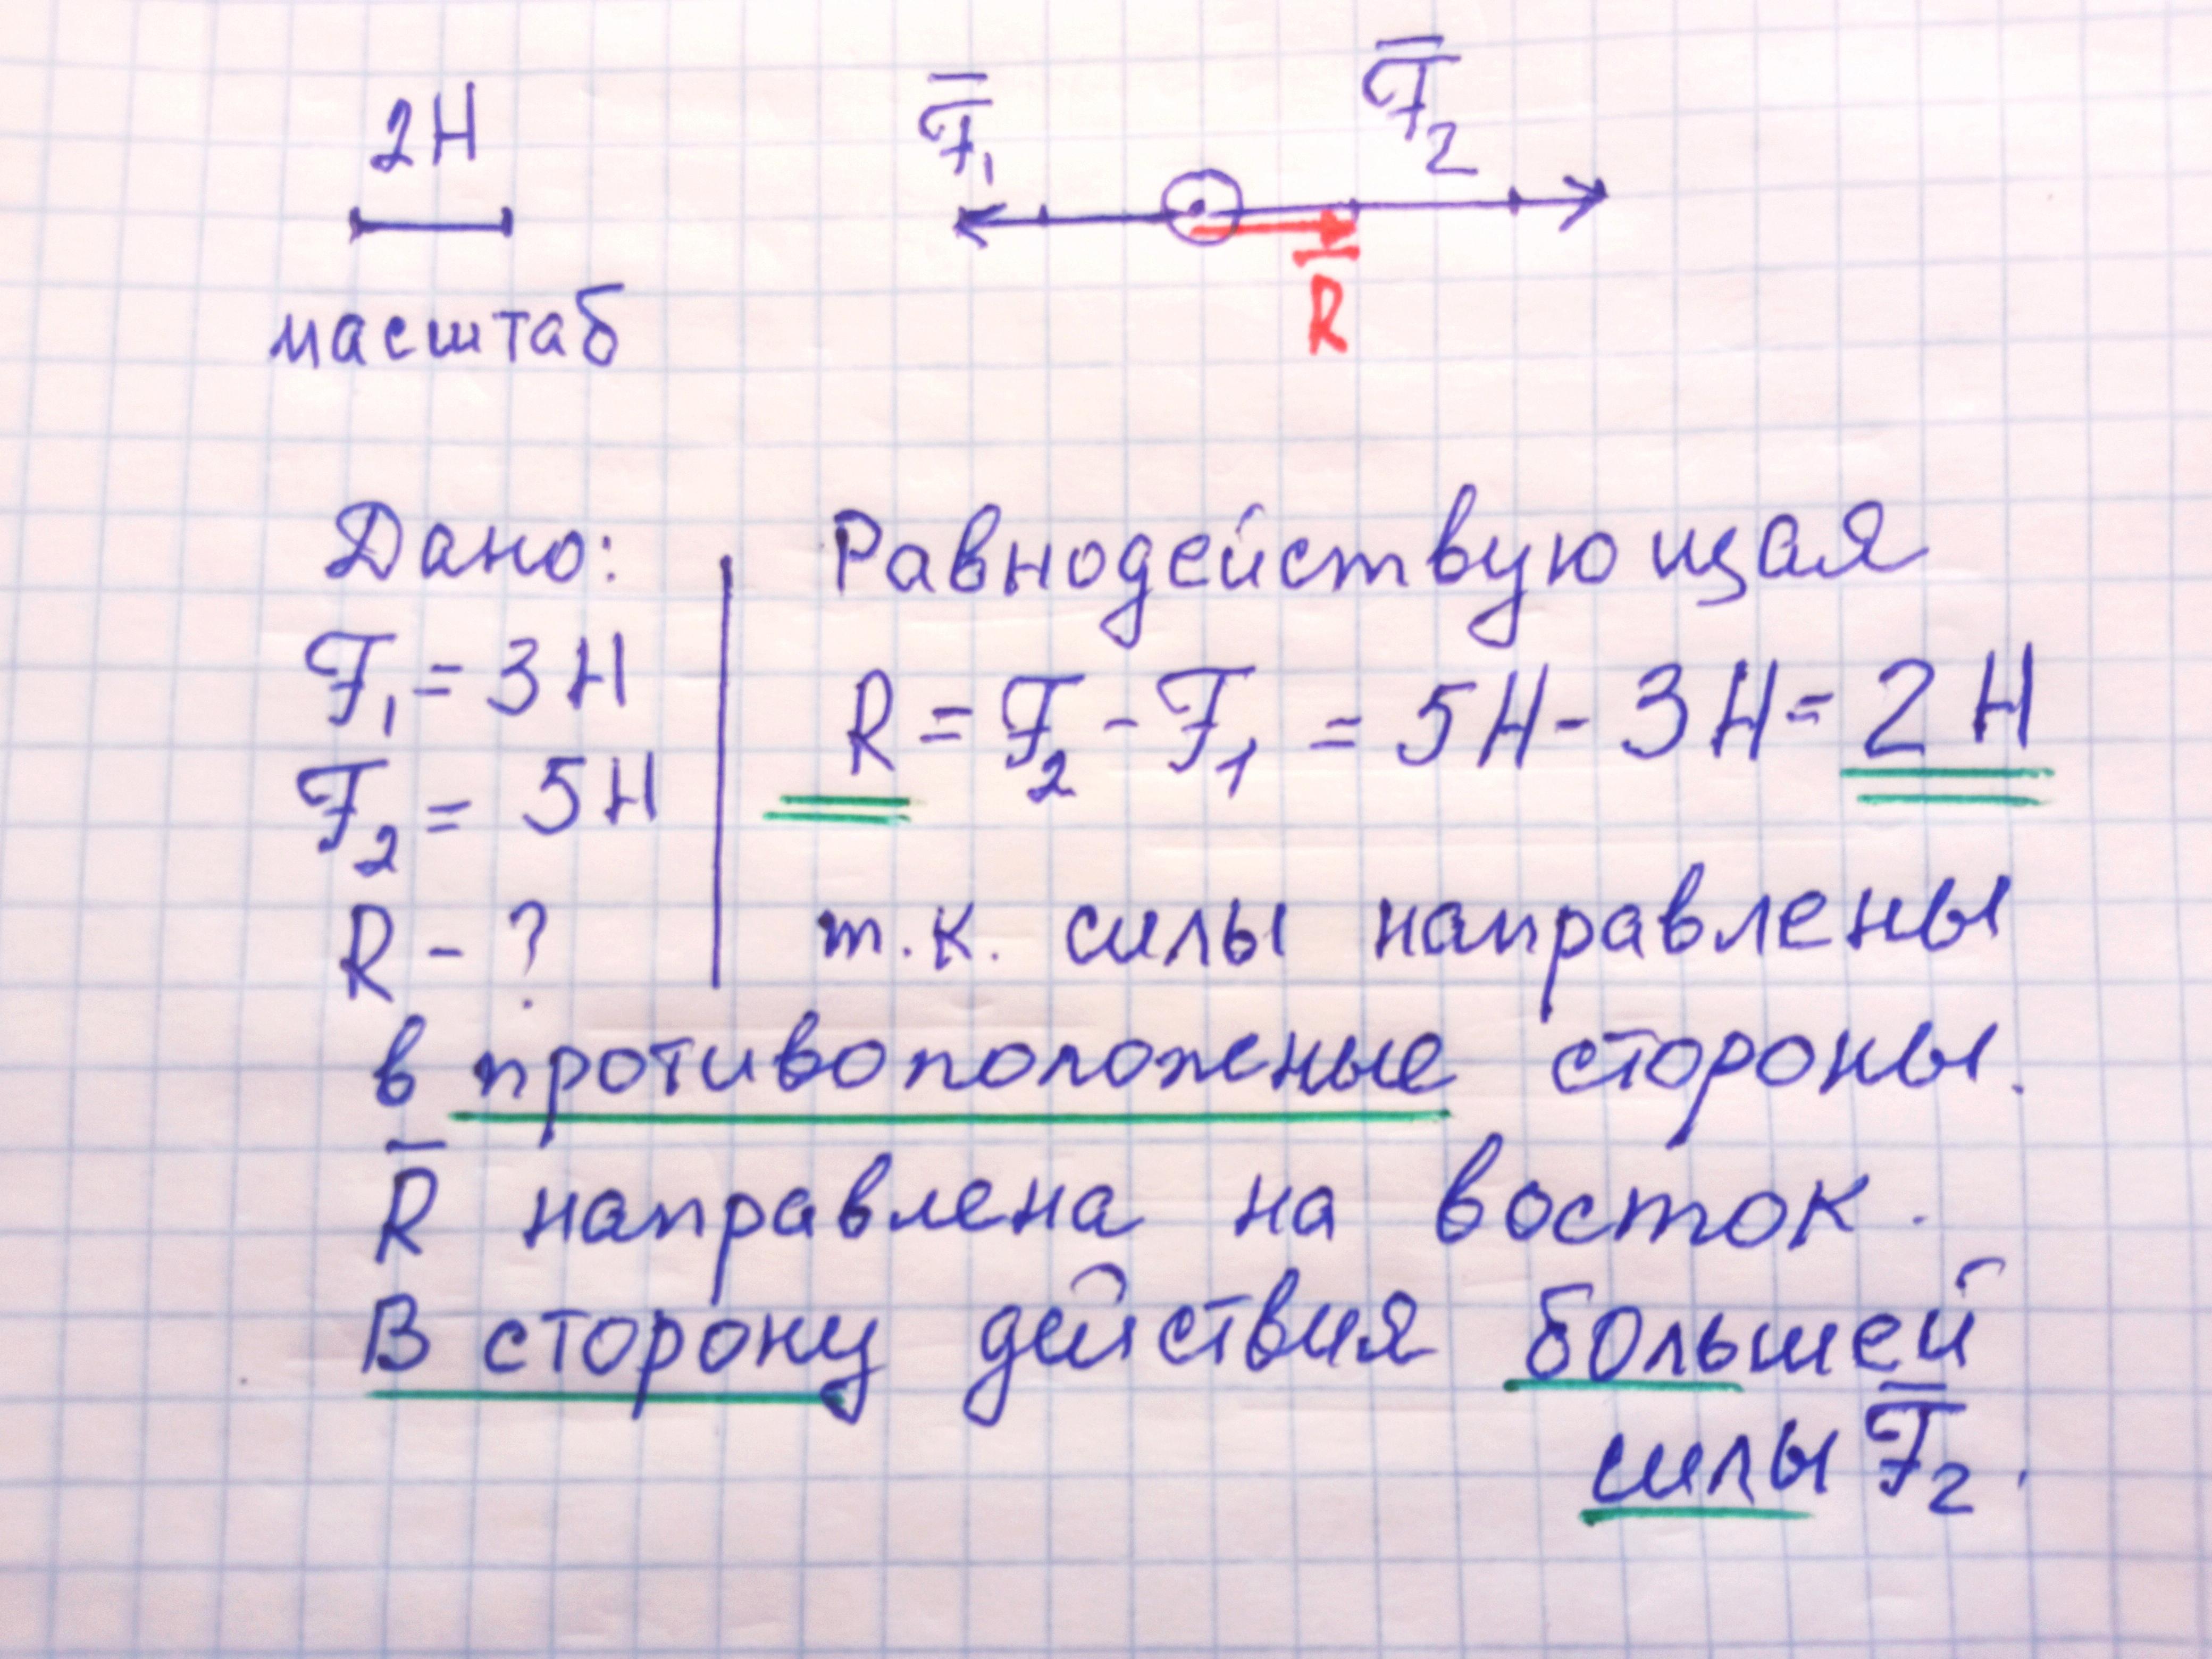 2Н
F̅₁
F̅₂
R̅
масштаб
Дано:
F₁ = 3Н
F₂ = 5Н
R - ?
Равнодействующая
R = F₂ - F₁ = 5Н - 3Н = 2Н
т.к. силы направлены
в противоположные стороны.
R̅ направлена на восток.
В сторону действия большей
силы F̅₂.